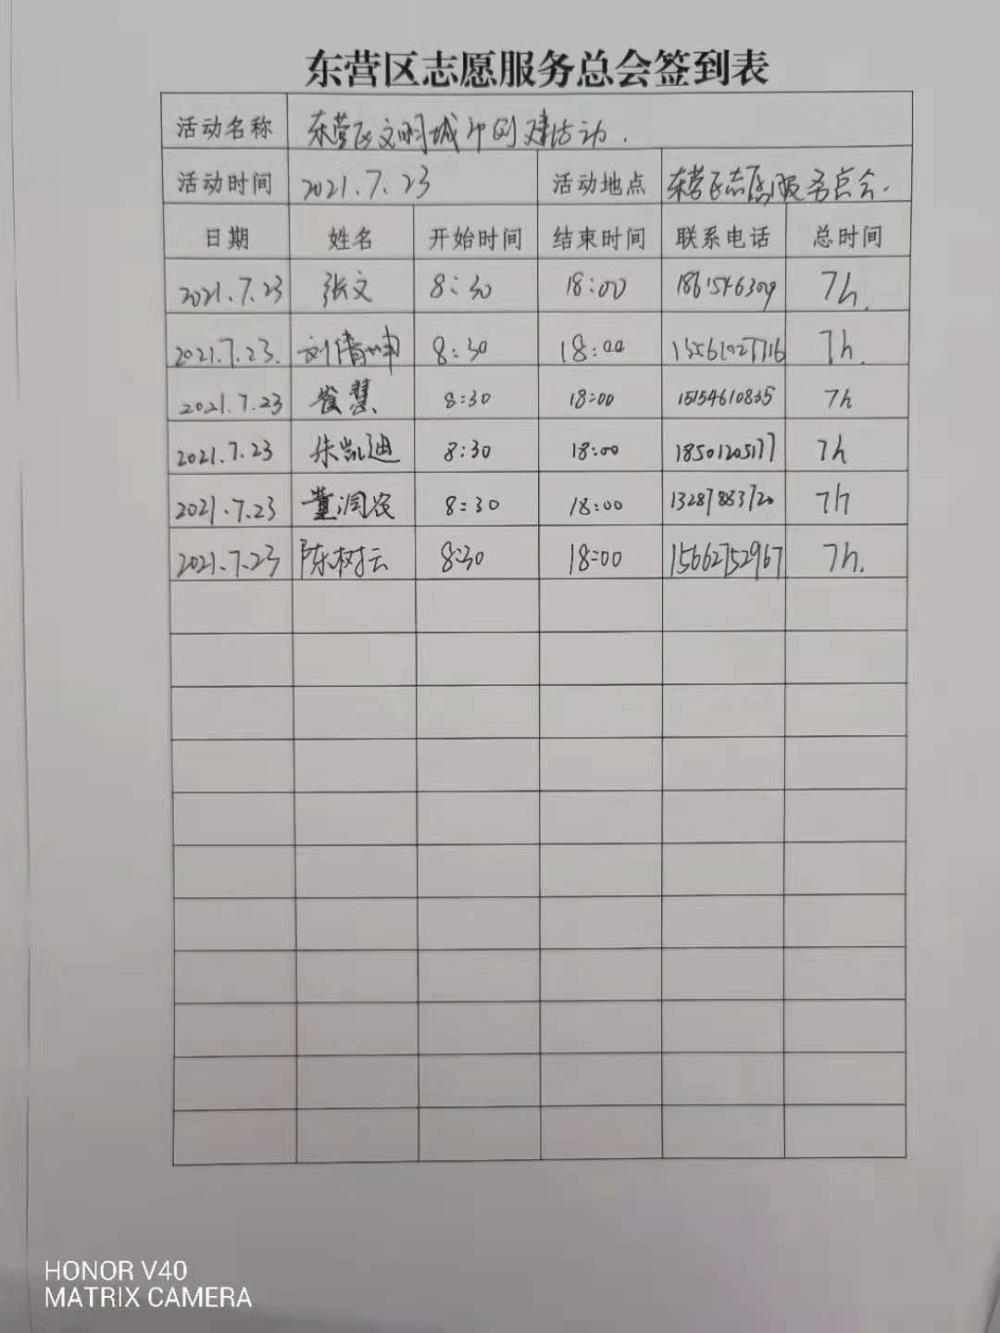 东营区志愿服务总会签到表
活动名称 东营区文明城市创建活动.
活动时间 2021.7.23 活动地点 东营区志愿服务总会.
日期 姓名 开始时间 结束时间 联系电话 总时间
2021.7.23 张文 8:30 18:00 7h.
2021.7.23. 刘倩坤 8:30 18:00 7h.
2021.7.23 崔慧 8:30 18:00 15154610835 7h
2021.7.23 朱凯迪 8:30 18:00 18501205177 7h
2021.7.23 董润农 8:30 18:00 13287883720 7h
2021.7.23 陈树云 8:30 18:00 15662752967 7h.
HONOR V40
MATRIX CAMERA